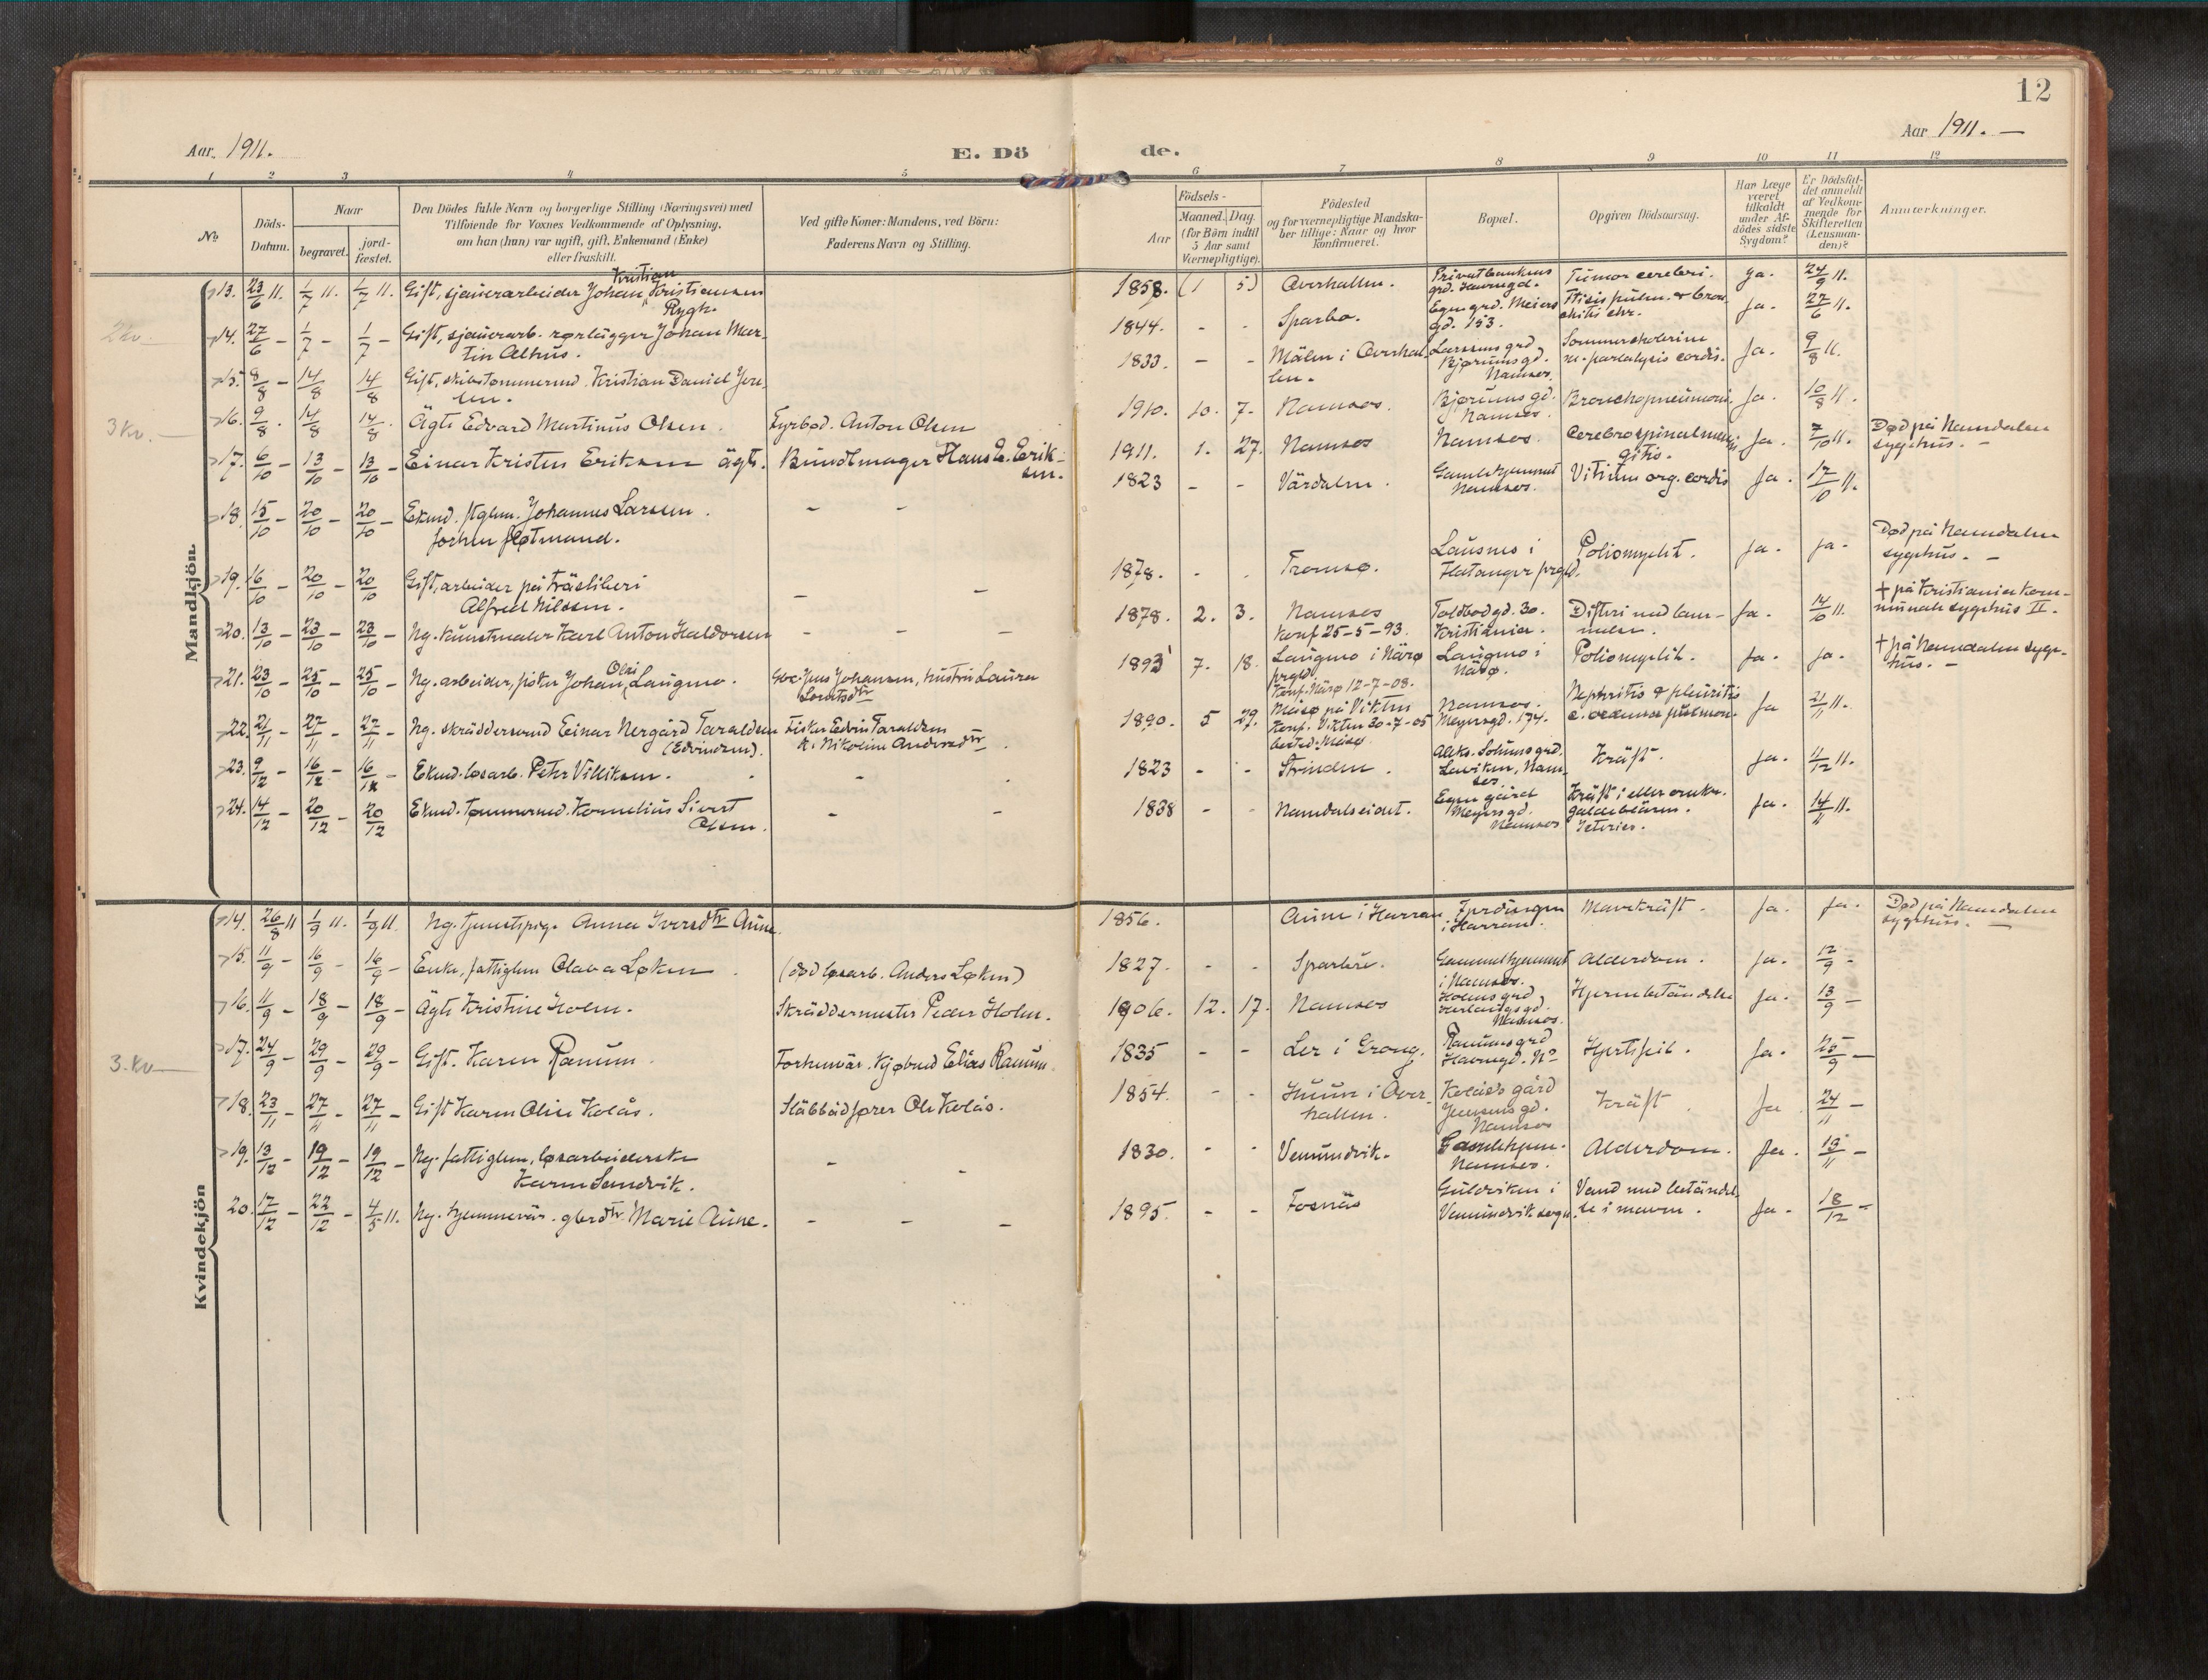 12
Aar 1911.
E. Dö de.
Aar 1911. —
1 2 3 4 5 6 7 8 9 10 11 12
Nr.
Döds-Datum.
Naar
begravet.
jord-fæstet.
Den Dödes fulde Navn og borgerlige Stilling (Næringsvei) med
Tilföiende for Voxnes Vedkommende af Oplysning,
om han (hun) var ugift, gift, Enkemand (Enke)
eller fraskilt.
Ved gifte Koner: Mandens, ved Börn:
Faderens Navn og Stilling.
Födsels-
Aar
Maaned. Dag.
(for Börn indtil
5 Aar samt
Værnepligtige).
Födested
og for værnepligtige Mandska-
ber tillige: Naar og hvor
konfirmeret.
Bopæl.
Opgiven Dödsaarsag.
Har Læge
været
tilkaldt
under Af-
dödes sidste
Sygdom?
Er Dödsfal-
det anmeldt
af Vedkom-
mende for
Skifteretten
(Lensman-
den)?
Anmærkninger.
Mandkjön.
13. 23/6 11. 1/7 11. 1/7 11. Gift, sjauerarbeider Johan Kristian Kristiansen
Rygh.
1858. (1 5) Overhallen. Privatbankens
grd. Havnegd. Tumor cerebri. Ja. 24/9 11.
2 kv.
14. 27/6 - 1/7 - 1/7 - Gift, sjauerarb. rørlägger Johan Mar-
tin Althus.
1844. - - Sparbo. Egen grd. Meiers
gd. 153. Ftisis pulm. & bron
chitis chr. Ja. 27/6 11.
15. 8/8 - 14/8 14/8 Gift, skibstømmermd. Kristian Daniel
1833. - - Mälen i Overhal-
len. Larsens grd
Bjørumsgd.
Namsos.
paralysis cordis. Ja. 9/8 11.
3 Kv. —
16. 9/8. 14/8 14/8. Ägte Edvard Martinus Olsen. Fyrbød. Anton Olsen
1910. 10. 7. Namsos. Bjørumsgd.
Namsos. Bronchopneumoni. Ja. 10/8 11.
17. 6/10 - 13/10 - 13/10 - Einar Kristen Eriksen ägte. Bundtmager Hans E. Erik-
sen.
1911. 1. 27. Namsos Namsos. Cerebrospinalmenin-
gitis. Ja. 7/10 11. Død på Namdalen
sygehus. —
18. 15/10 - 20/10 - 20/10 - Ekmd. ftglem. Johannes Larsen.
forhen fløtmand. - -
1823 - - Värdalen. Gamlehjemmet
Namsos. Vitium org. cordis Ja. 17/10 11.
19. 16/10 - 20/10 - 20/10 Gift, arbeider på träsliberi
Alfred Nilssen. - -
1878. - . Tromsø. Lausnes i
Flatanger prgld. Poliomyelit. Ja. Ja. Død på Namdalen
sygehus. —
20. 13/10 - 23/10 - 23/10 - Ug. kunstmaler Karl Anton Haldorsen - - -
1878. 2. 3. Namsos
konf 25-5-93. Toldbodgd. 30.
Kristiania. Difteri med lam-
melse. Ja. 14/10 11. † på Kristiania kom-
munale sygehus II.
21. 23/10 - 25/10 - 25/10 - Ug. arbeider, fisker Johan Olai Laugmo. Gbr. Jens Johansen, hustru Laura
Lorntsdtr
1893 7. 18. Laugmo i Närø
prgld.
Konf. Närø 12-7-08. Laugmo i
Närø. Poliomyelit. Ja. Ja. † på Namdalen syge-
hus. —
22. 21/11 - 27/11 - 27/11 - Ug. skräddersvend Einar Nergård Taraldsen
(Edvindsen). Fisker Edvin Taraldsen
& Nikoline Andersdtr.
1890. 5 29. Måsø på Vikten
Konf. Vikten 30-7-05
Namsos.
Meyersgd. 174. Nephritis & pleuritis
c. oedema pulmon. Ja 21/11 11.
23. 9/12 - 16/12 - 16/12 - Ekmd. løsarb. Peter Villiksen. - -
1823 - - Strinden. Aleks. Solumsgrd.
Laviken, Nam-
sos. Kräft. Ja. 11/12 11.
24. 14/12 - 20/12 - 20/12 Ekmd. Tømmermd. Kornelius Sivert
Olsen. - -
1838 - - Namdalseidet. Egen gård
Meyersgd.
Namsos Kräft i eller omkr.
galdeblären.
Icterus. Ja. 14/11 11.
Kvindekjön
14. 26/8 11 1/9 11. 1/9 11. Ug. tjenestepige Anna Iversdtr Aune.
1856. Aune i Harran Fjerdingen
i Harran. Mavekräft. Ja. Ja. Død på Namdalen
sygehus. —
15. 11/9 - 16/9 - 16/9 - Enke, fattiglem Olava Løken. (død løsarb. Anders Løken)
1827. - - Sparbu. Gammelhjemmet
i Namsos. Alderdom. Ja. 12/9 -
16. 11/9 - 18/9 - 18/9 - Ägte Kristine Holm. Skräddermester Peder Holm.
1906. 12. 17. Namsos Holms grd
Namsos. Hjernebetändelse Ja. 13/9 -
3. Kv —
17. 24/9 - 29/9 - 29/9 - Gift. Karen Ranum. Forhenvär. Kjøbmd Elias Ranum.
1835 - - Ler i Grong. Ranums grd
Havnegd. No Hjertefeil. Ja. 25/9 —
18. 23/11 - 27/11 - 27/11 - Gift Karen Oline Kolås. Släbbådfører Ole Kolås.
1854. - - Hunn i Over-
hallen. Kolås gård
Jensensgd.
Namsos Kräft. Ja. 24/11 -
19. 13/12 - 19/12 - 19/12 - Ug. fattiglem, løsarbeiderske
Karen Sandvik. - -
1830. - - Vemundvik. Gamlehjem.
Namsos. Alderdom. Ja. 13/11 -
20. 17/12 - 22/12 - 4/5 11. Ug. hjemmevär. gbrdtr. Marie Aune. - - -
1895. - - Fosnäs Guldviken i
Vemundvik sogn. Vand med betändel-
se i maven. Ja. 18/12 -